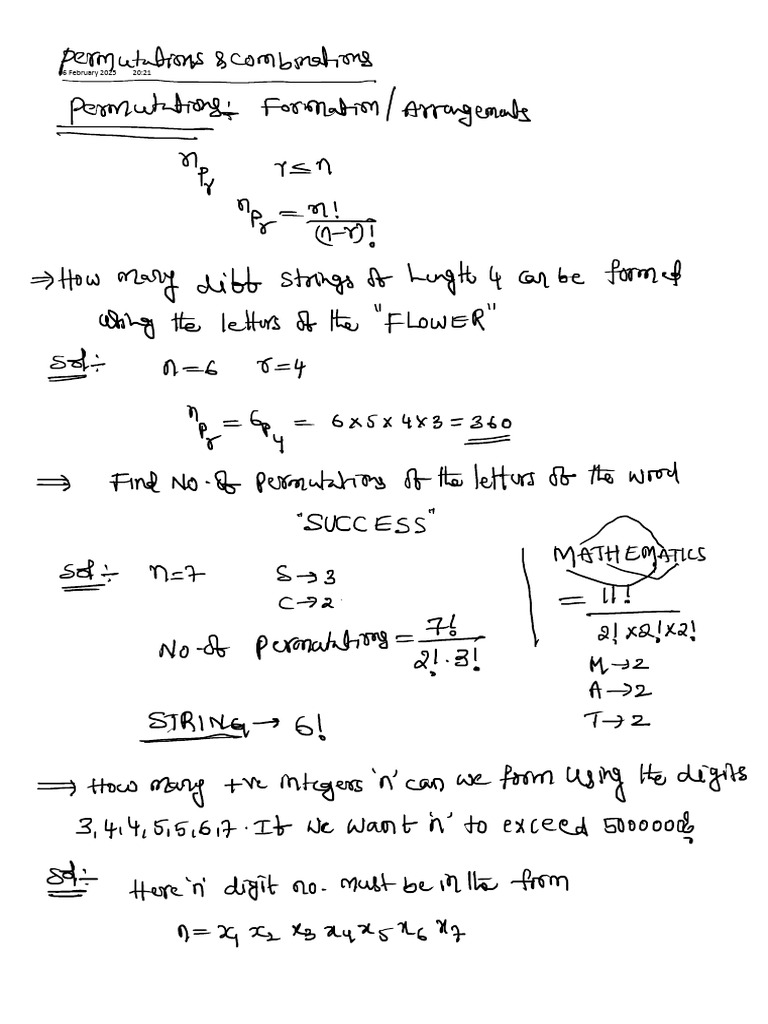 Permutations & Combinations
6 February 2025 20:21
Permutations:- Formation/Arrangements
nPr r≤n
nPr = n!/(n-r)!
⇒ How many diff strings of length 4 can be formed
using the letters of the "FLOWER"
Sol:- n=6 r=4
nPr = 6P4 = 6×5×4×3 = 360
⇒ Find No. of permutations of the letters of the word
"SUCCESS"
Sol:- n=7 S→3
C→2
No. of permutations = 7!/2!·3!
MATHEMATICS
= 11!/2!×2!×2!
M→2
A→2
T→2
STRING → 6!
⇒ How many +ve integers 'n' can we form using the digits
3,4,4,5,5,6,7. If we want 'n' to exceed 5000000?
Sol:- Here 'n' digit no. must be in the from
n = x1 x2 x3 x4 x5 x6 x7